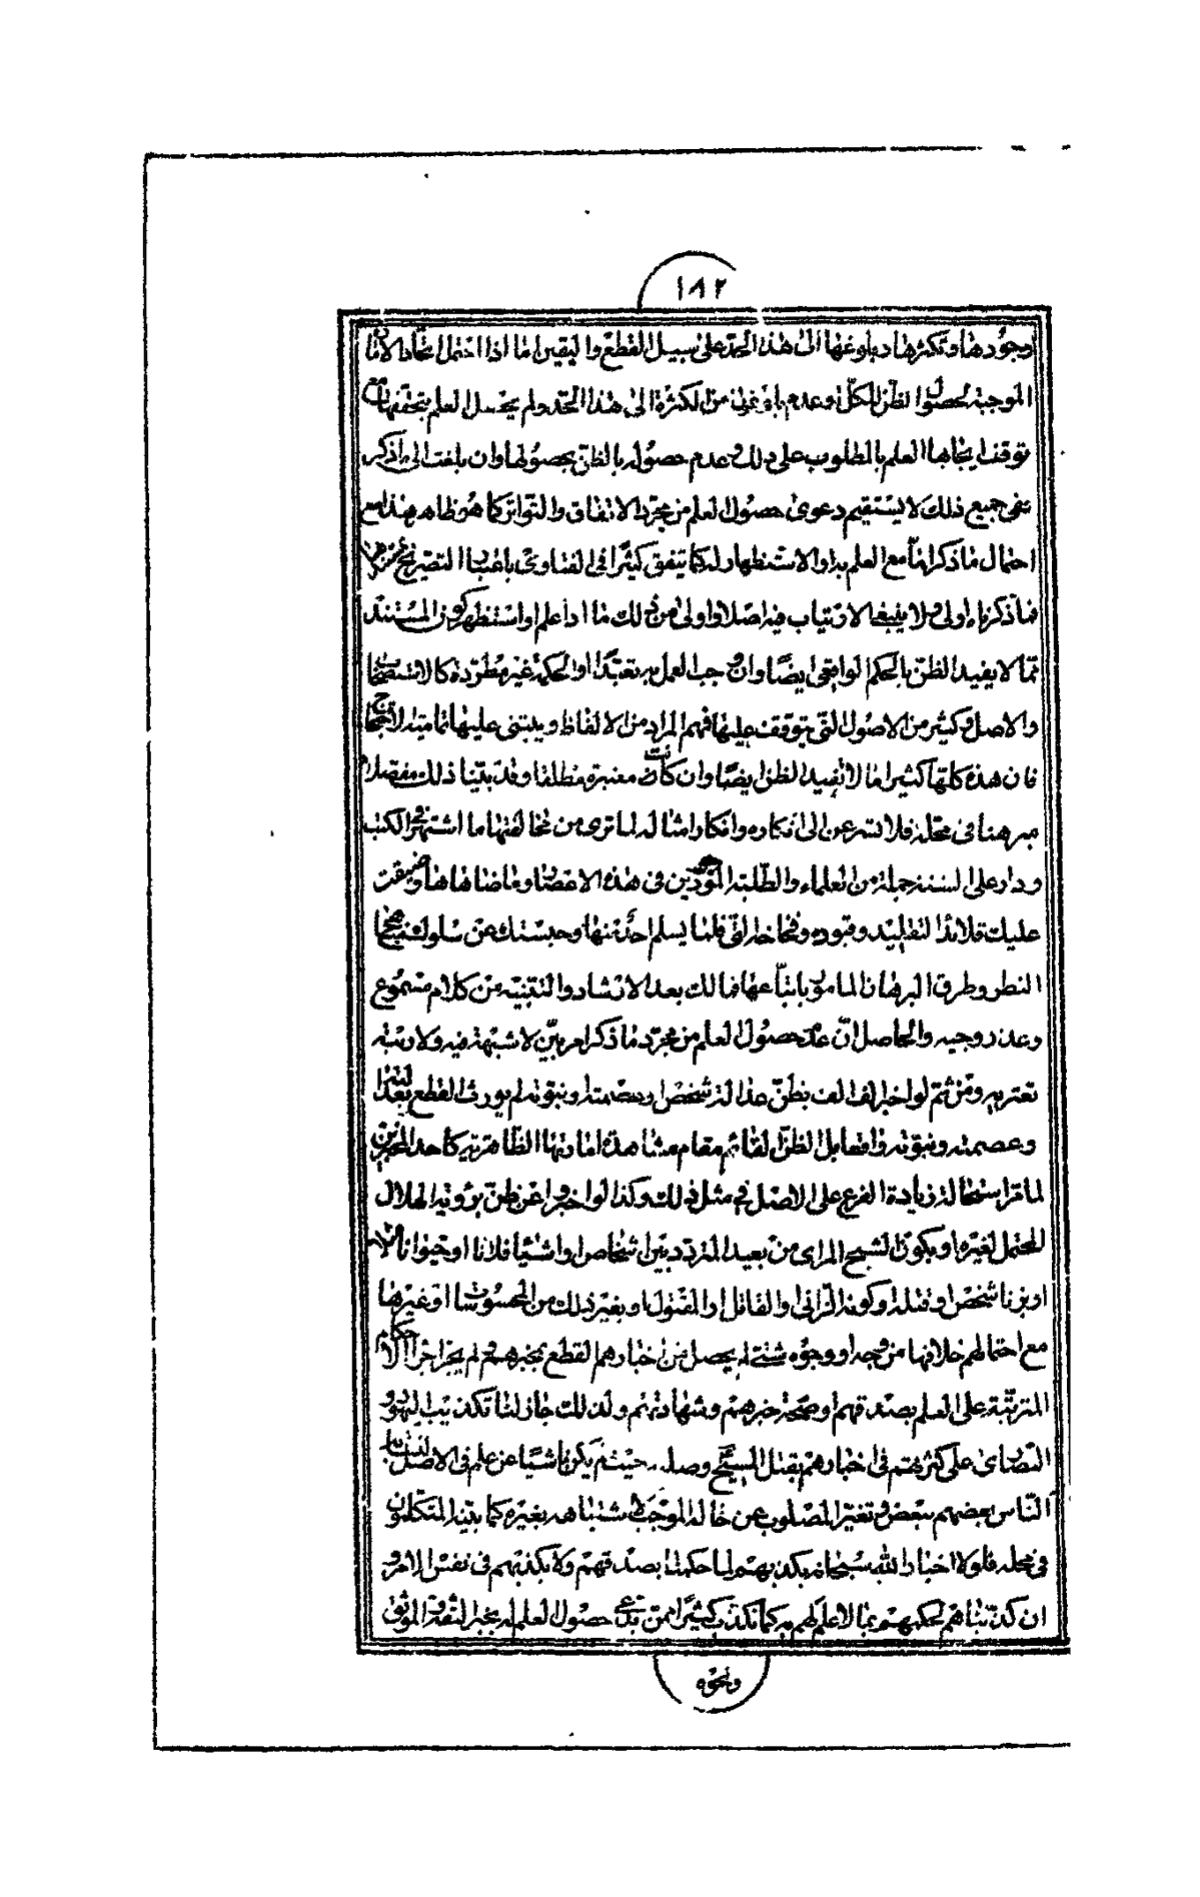 ١٨٢
وجودها وتكثرها وبلوغها الى هذا الحد على سبيل القطع واليقين اما اذا احتمل اتحاد الامارات
الموجبة لحصول الظن للكل او عدم بلوغها من الكثرة الى هذا الحد ولم يحصل العلم بتحققها مع
توقف ايجابها العلم بالمطلوب على ذلك وعدم حصوله بالظن بحصولها وان بلغت الى ما ذكر
ففى جميع ذلك لا يستقيم دعوى حصول العلم من مجرد الاتفاق والتواتر كما هو ظاهر هذا مع
احتمال ما ذكرناه مع العلم به او الاستظهار له كما يتفق كثيرا فى الفتاوى باعتبار التصريح
فما ذكرناه اولى ولا ينبغى الارتياب فيه اصلا واولى من ذلك ما اذا علم او استظهر كون المستند
مما لا يفيد الظن بالحكم الواقعى ايضا وان وجب العمل به تعبدا او لحكمة غير مطردة كالاستصحاب
والاصل وكثير من الاصول التى يتوقف عليها فهم المراد من الالفاظ ويبتنى عليها
فان هذه كلها كثيرا ما لا تفيد الظن ايضا وان كانت معتبرة مطلقا وقد بينا ذلك مفصلا
مبرهنا فى محله فلا تسرعن الى انكاره وانكار امثاله لما ترى من مخالفتها ما اشتهر فى الكتب
ودار على السنة جملة من العلماء والطلبة المترددين فى هذه الاعصار وما ضاهاها وضيقت
عليك قلائد التقليد وقيوده وفخاخه التى قلما يسلم احد منها وحبستك عن سلوك مناهج
النظر وطرق البرهان المامور باتباعها فما لك بعد الارشاد والتنبيه من كلام مسموع
وعذر وجيه والحاصل ان عدم حصول العلم من مجرد ما ذكر امر بين لا شبهة فيه ولا ريبة
تعتريه ومن ثم لو اخبر الف الف بظن عدالة شخص او عصمته او نبوته لم يورث القطع بعدالته
وعصمته ونبوته واقعا بل الظن القائم مقام مشاهدة اماراتها الظاهرية كاحد المخبرين
لما مر استحالة زيادة الفرع على الاصل فى مثل ذلك وكذا لو اخبروا عن ظن برؤية الهلال
المحتمل لغيره او بكون الشبح المرائى من بعيد المتردد بين اشخاص او اشياء فلانا او حيوانا
او بزنا شخص او قتله وكونه الزانى والقاتل او المقتول او بغير ذلك من المحسوسات او غيرها
مع احتمالهم خلافها من وجه او وجوه شتى لم يحصل من اخبارهم القطع بخبرهم ولم يجز اجراء الاحكام
المترتبة على العلم بصدقهم او صحة خبرهم وشهادتهم ولذلك جاز لنا تكذيب اليهود و
النصارى على كثرتهم فى اخبارهم بقتل المسيح وصلبه حيث لم يكن ناشيا عن علم فى الاصل لتشابه
الناس بعضهم ببعض وتغير المصلوب عن حاله الموجب لاشتباهه بغيره كما بينه المتكلمون
فى محله فلولا اخبار الله سبحانه بكذبهم لما حكمنا بصدقهم ولا بكذبهم فى نفس الامر و
ان كذبناهم لحكمهم بما لا علم لهم به كما نكذب كثيرا ممن يدعى حصول العلم له بخبر الثقة والموثق
ونحوه